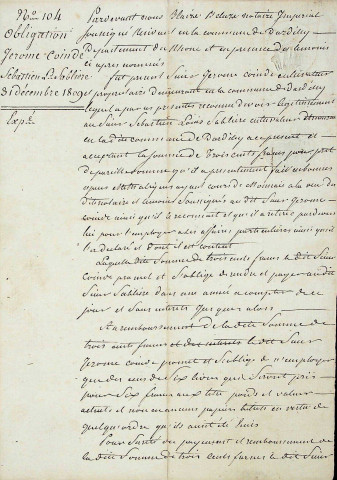 No. 104
Obligation
Jerome Coinde
à
Sébastien Ls. Sablière
31 décembre 1809
Exp.
Pardevant nous Notaire Impérial
soussigné Résident en la commune de Dardilly
Département du Rhône et en présence des témoins
ci après nommés
fut présent Sieur Jerome Coinde cultivateur
propriétaire demeurant en la commune de Dardilly
lequel a par ces présentes reconnu devoir légitimement
au Sieur Sébastien Louis Sablière cultivateur
en la dite commune de Dardilly à ce présent et
acceptant la somme de Trois cents francs pour prêt
de pareille somme qu'il a présentement fait en bonnes
espèces métalliques ayant cours de monnaie à la vue du
dit notaire et témoins soussignés au dit Sieur Jerome
Coinde ainsi qu'il le reconnait et qu'il a retirée par devers
lui pour l'employer à ses affaires particulières ainsi qu'il
l'a déclaré et dont il est content
Laquelle dite somme de trois cents francs le dit Sieur
Coinde promet et s'oblige de rendre et payer au dit
Sieur Sablière dans une année à compter de ce
jour et sans intérêts jusqu'alors
Au remboursement de la dite somme de
trois cents francs le dit Sieur
Jerome Coinde promet et s'oblige de n'employer
que des écus de six livres qui seront pris
pour six francs aux titre poids et valeur
actuels et non en aucuns papiers billets en vertu de
quelqu'ordre qu'ils aient de cours
Pour sureté du payement et remboursement de
la dite somme de trois cents francs le dit Sieur